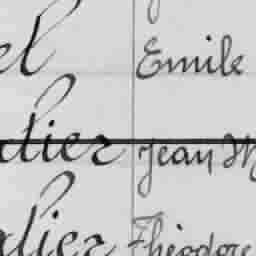 el Emile
dier Jean M
dier Théodore